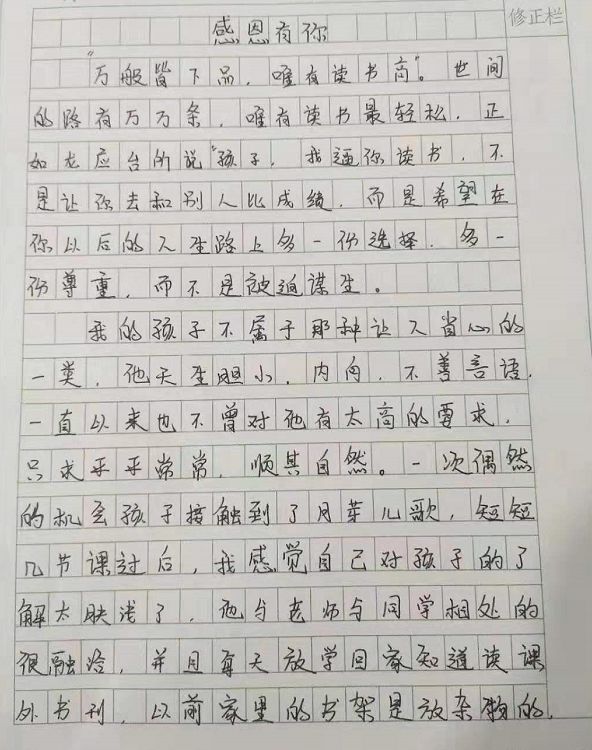 修正栏
感恩有你
"万般皆下品，唯有读书高"。世间
的路有万万条，唯有读书最轻松，正
如龙应台的说"孩子，我逼你读书，不
是让你去和别人比成绩，而是希望在
你以后的人生路上多一份选择，多一
份尊重，而不是被迫谋生。
我的孩子不属于那种让人省心的
一类，他天生胆小，内向，不善言语，
一直以来也不曾对他有太高的要求，
只求平平常常，顺其自然。一次偶然
的机会孩子接触到了月芽儿歌，短短
几节课过后，我感觉自己对孩子的了
解太肤浅了，他与老师与同学相处的
很融洽，并且每天放学回家知道读课
外书刊，以前家里的书架是放杂物的，